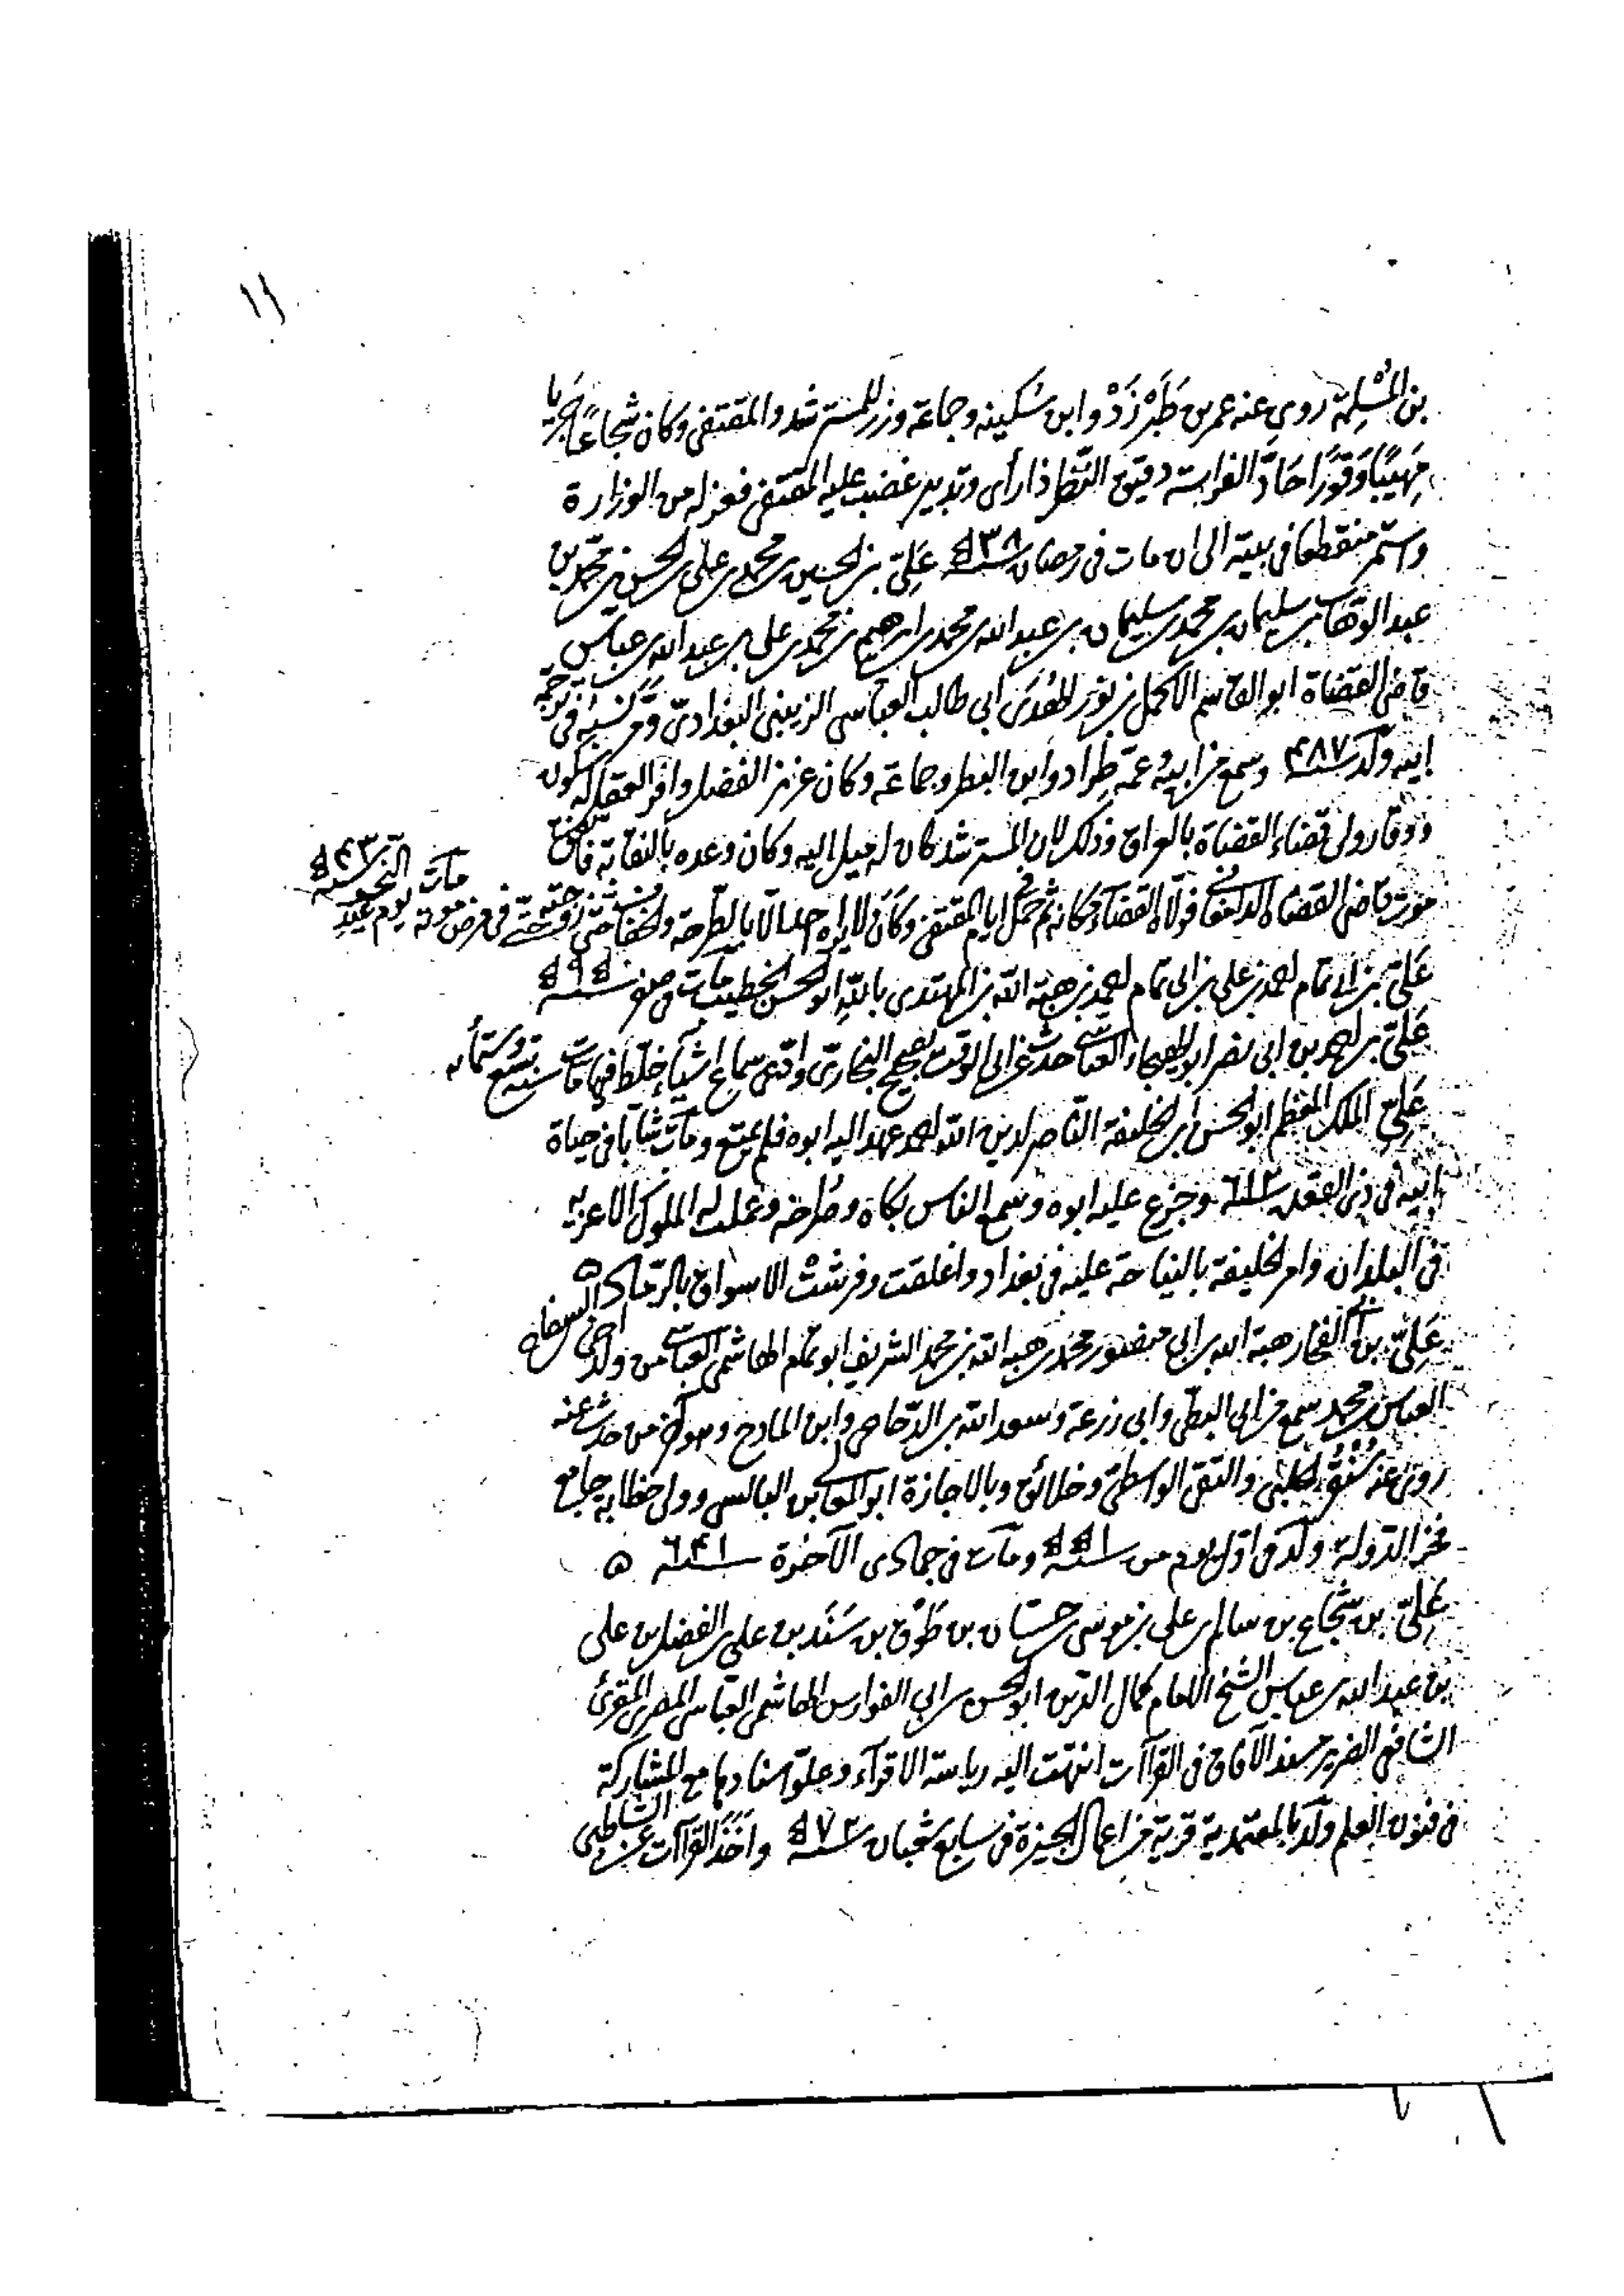 ١١
بن المُسْلِمة روى عنه عمر بن طَبَرْزَدْ وابن سُكينه وجماعة وزر للمسترشد والمقتفى وكان شجاعًا جريا
مَهيبًا وَقورًا حَادَّ الفراسة دقيق النّظر ذا رأى وتدبير غضب عليه المقتفى فعزله من الوزارة
واستمّر منقطعا فى بيته الى ان مات فى رمضان سنة ٥٣٨ عَلىّ بن الحسين بن محمد بن على بن الحسن بن محمّد بن
عبد الوهّاب بن سليمان بن محمد بن سليمان بن عبد الله بن محمد بن ابرهيم بن محمد بن على بن عبد الله بن عباس
قاضى القضاة ابو القاسم الاكمل بن نور الهُدَى ابى طالب العباسى الزينبى البغدادىّ وقد مَرّ نسبُه فى ترجمة
ابيه وُلد سنة ٤٨٧ وسمع من ابيه وعمّه طِراد وابن البطر وجماعة وكان غزير الفضل وافر العقل له سكون
ووقار ولى قضاء القضاة بالعراق وذلك لان المسترشد كان له ميل اليه وكان وعده بالنقابة فاتفق
موت قاضى القضاة الدامغانى فولّاه القضاء مكانه ثم ايام المقتفى وكان لا يراه احد الّا بالطرحة والخفّ حتى زوجته فى مرض موته
مات يوم عيد النحر سنة ٥٤٣
عَلىّ بن ابى تمّام احمد بن على بن ابى تمام احمد بن هبة الله بن المهتدى بالله ابو الحسن الخطيب مات فى صفر سنة ٥٩٥
عَلىّ بن احمد بن ابى نصر ابو الهيجاء العباسى حدث عن ابى الوقت بصحيح البخارىّ وادّعى سماع اشيآء خلّط فيها مات سنة تسع وستمأئة
عَلىّ الملك المعظم ابو الحسن ابن الخليفة الناصر لدين الله احمد عهد اليه ابوه فلم يمتع ومات شابًا فى حياة
ابيه فى ذى القعدة سنة ٦١٢ وجزع عليه ابوه وسمع الناس بكاه وصُراخه وعملت له الملوك الاعزية
فى البلدان وامر الخليفة بالنياحة عليه فى بغداد واغلقت وفرشتْ الاسواق بالرّماد
عَلىّ بن ابى الفخار هبة الله بن ابى منصور محمد بن هبه الله بن محمد الشريف ابو تمام الهاشمى العباسى من ولد اخى السفاح
العباس بن محمد سمع من ابى البطّى وابى زرعة وسعد الله بن الدّجاجى وابن المادح وهو اخر من حدث عنه
روى عنه سُنْقُر الحلبى والتقى الواسطىّ وخلائق وبالاجازة ابو المعالى بن البالسى وولى خطابة جامع
فخر الدّولة وُلد فى اوّل يوم من سنة ٥٥١ ومات فى جمادى الآخرة سنة ٦٤١ ٥
عَلىّ بن شُجاع بن سالم بن على بن موسى بن حسّان بن طَوْق بن سَنَد بن على بن الفضل بن على
بن عبد الله بن عباس الشيخ الامام كمال الدّين ابو الحسن بن ابى الفوارس الهاشمى العبّاسى المصرى المقرئ
الشافعى الضرير مسند الآفاق فى القراآت انتهت اليه رياسة الاقرآء وعلوّ اسنادها مع المشاركة
فى فنون العلم وُلد بالمعتمدية قرية من اعمال الجيزة فى سابع شعبان سنة ٥٧٢ واخذ القراآت عن الشاطبى